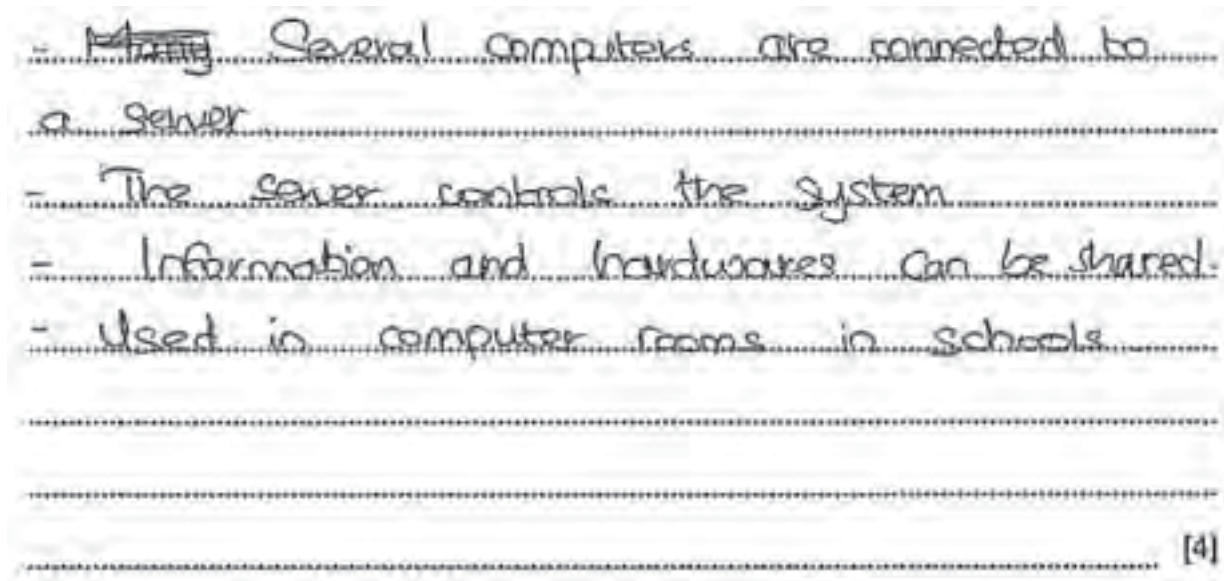 - Many Several computers are connected to
a server
- The server controls the system
- Information and hardwares can be shared.
- Used in computer rooms in schools
[4]